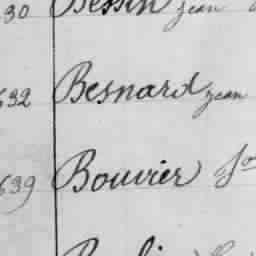 30 Bessin jean
632 Besnard jean
639 Bouvier